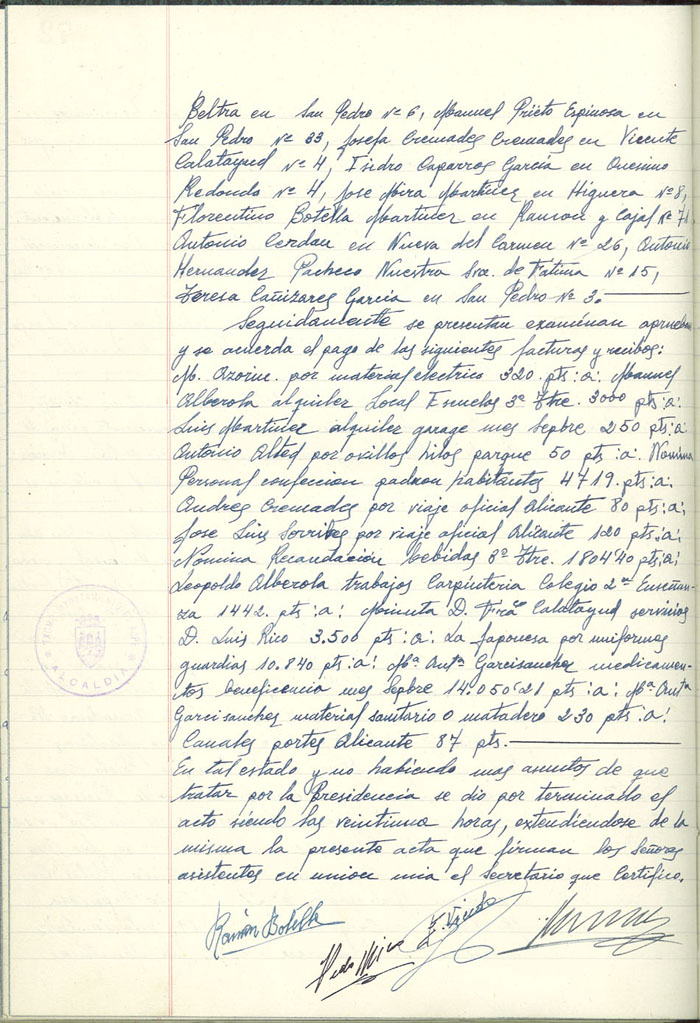 Beltra en San Pedro Nº 6, Manuel Prieto Espinosa en
San Pedro Nº 33, Josefa Cremades Cremades en Vicente
Calatayud Nº 4, Isidro Caparros García en Onesimo
Redondo Nº 4, Jose Mira Martinez en Higuera Nº 8,
Florentino Botella Martinez en Ramon y Cajal Nº 71,
Antonio Cerdan en Nueva del Carmen Nº 26, Antonio
Hernandez Pacheco Nuestra Sra. de Fatima Nº 15,
Teresa Cañizares Garcia en San Pedro Nº 3.
Seguidamente se presentan examinan aprueban
y se acuerda el pago de las siguientes facturas y recibos:
M. Azorin. por material electrico 320. pts:a: Manuel
Alberola alquiler Local Escuelas 3º Ttre. 3000 pts:a:
Luis Martinez alquiler garage mes Sepbre 250 pts:a:
Antonio Alted por ovillos hilos parque 50 pts:a: Nomina
Personal confeccion padron habitantes 4719. pts:a:
Andres Cremades por viaje oficial Alicante 80 pts:a:
Jose Luis Sorribes por viaje oficial Alicante 120 pts:a:
Nomina Recaudación bebidas 3º Ttre. 1804'40 pts:a:
Leopoldo Alberola trabajos Carpinteria Colegio 2ª Enseñan-
za 1442. pts:a: Minuta D. Frcº Calatayud servicios
D. Luis Rico 3.500 pts:a: La Japonesa por uniformes
guardias 10.840 pts:a: Mª Antª Garcisanchez medicamen-
tos beneficencia mes Sepbre 14.050'21 pts:a: Mª Antª
Garcisanchez material sanitario o matadero 230 pts:a:
Canales portes Alicante 87 pts.
En tal estado y no habiendo mas asuntos de que
tratar por la Presidencia se dio por terminado el
acto siendo las veintiuna horas, extendiendose de la
misma la presente acta que firman los Señores
asistentes en union mia el Secretario que Certifico.
Ramón Botella
ALCALDIA